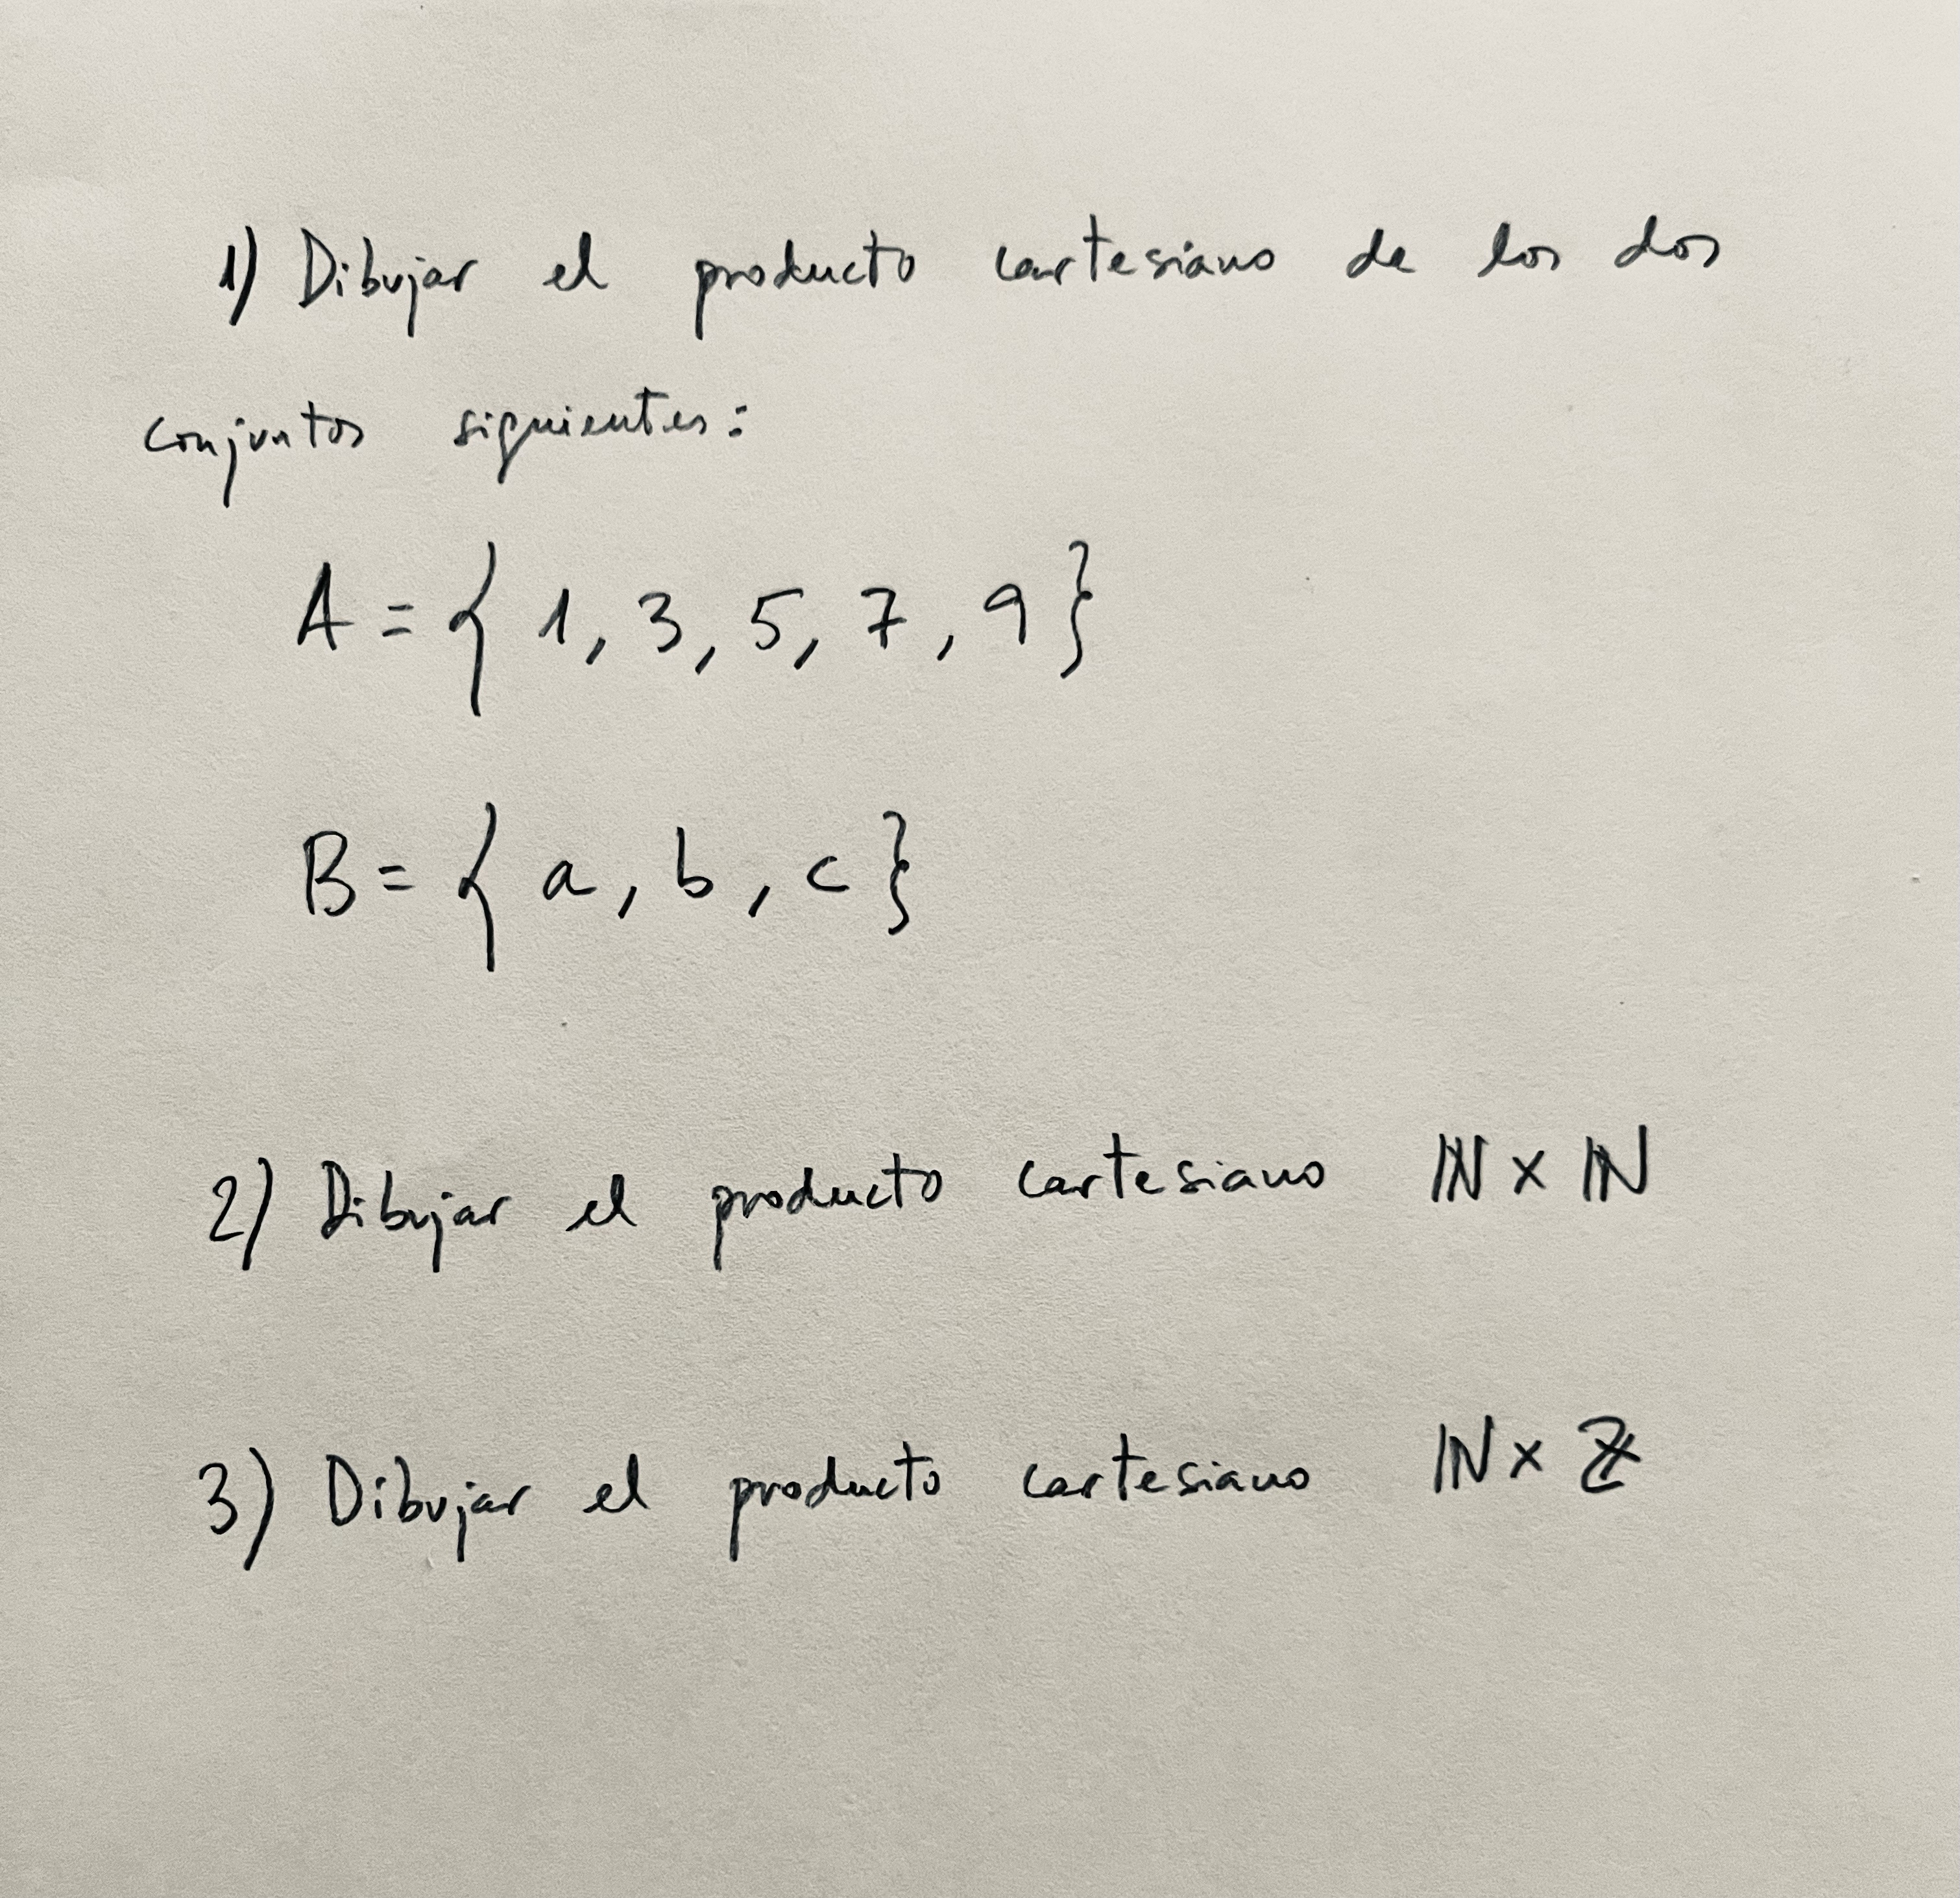 1) Dibujar el producto cartesiano de los dos
conjuntos siguientes:
A = { 1, 3, 5, 7, 9 }
B = { a, b, c }
2) Dibujar el producto cartesiano ℕ x ℕ
3) Dibujar el producto cartesiano ℕ x ℤ